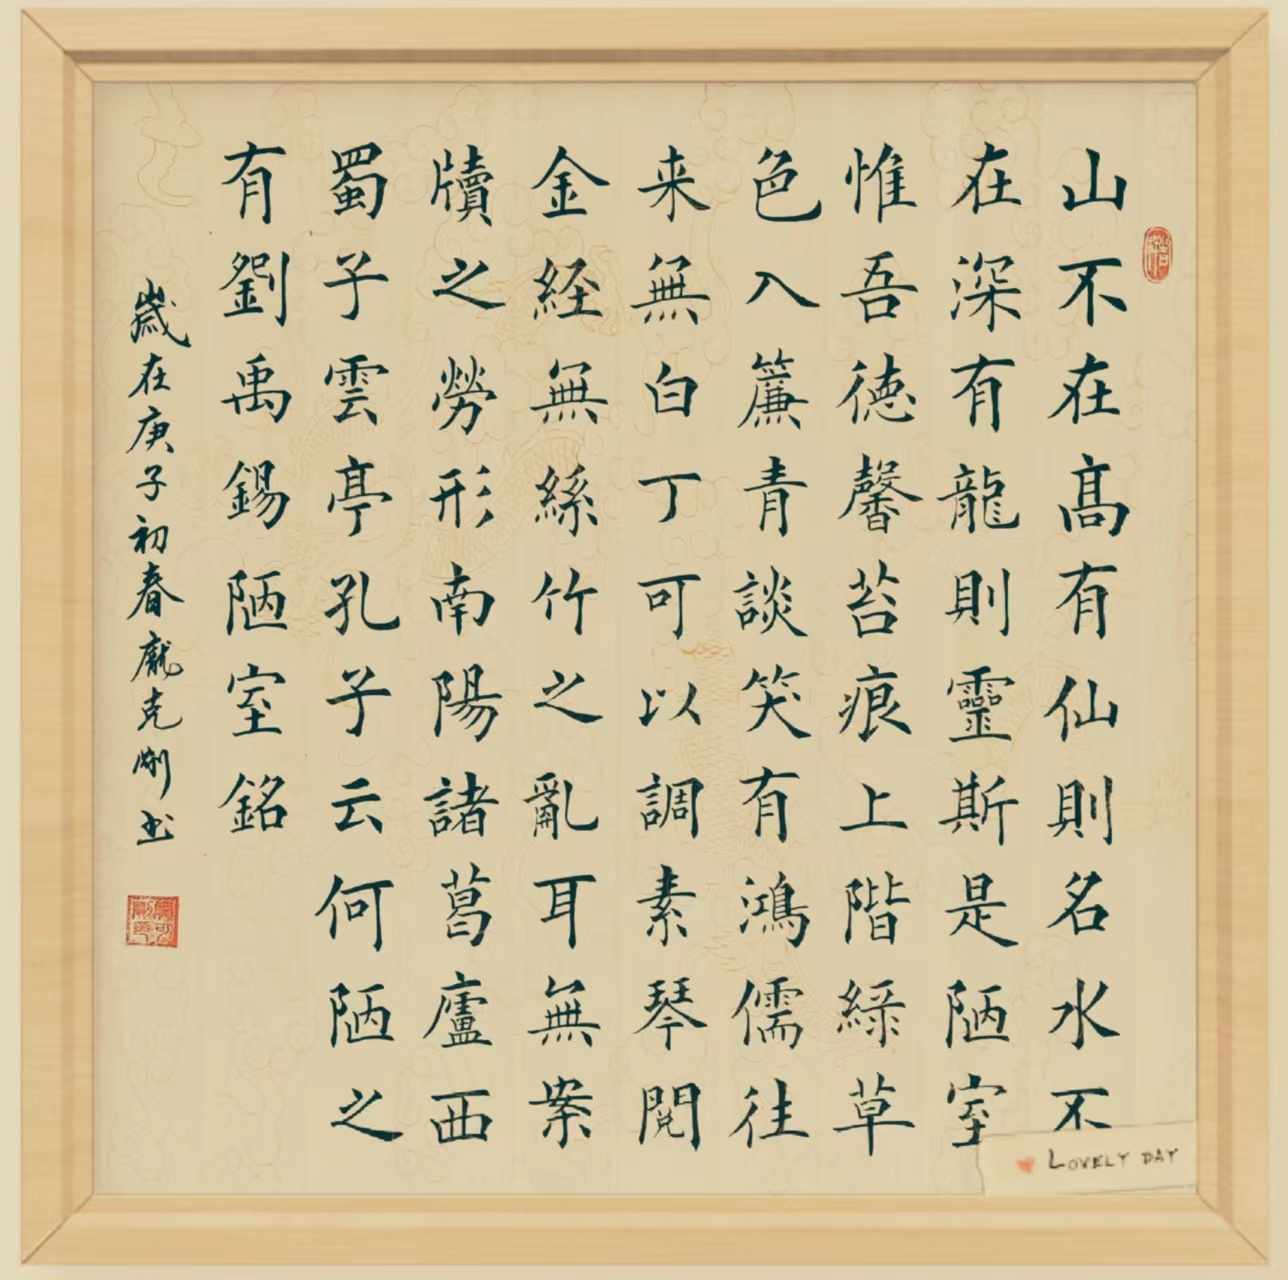 山不在髙有仙則名水不
在深有龍則靈斯是陋室
惟吾徳馨苔痕上階緑草
色入簾青談笑有鴻儒往
来無白丁可以調素琴閲
金経無絲竹之亂耳無案
牘之勞形南陽諸葛廬西
蜀子雲亭孔子云何陋之
有劉禹錫陋室銘
歲在庚子初春龐克剛书
LOVELY DAY